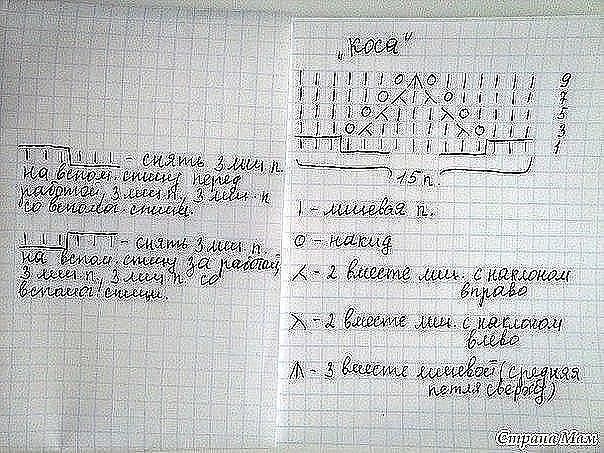 - снять 3 лиц п.
на вспом. спицу перед
работой, 3 лиц п, 3 лиц. п
со вспомог. спицы.
- снять 3 лиц п
на вспом. спицу за работой,
3 лиц п, 3 лиц п, со
вспомог. спицы.
"Коса"
9
7
5
3
1
15 п.
| - лицевая п.
О - накид
- 2 вместе лиц. с наклоном
вправо
- 2 вместе лиц. с наклоном
влево
- 3 вместе лицевой (средняя
петля сверху)
Страна Мам